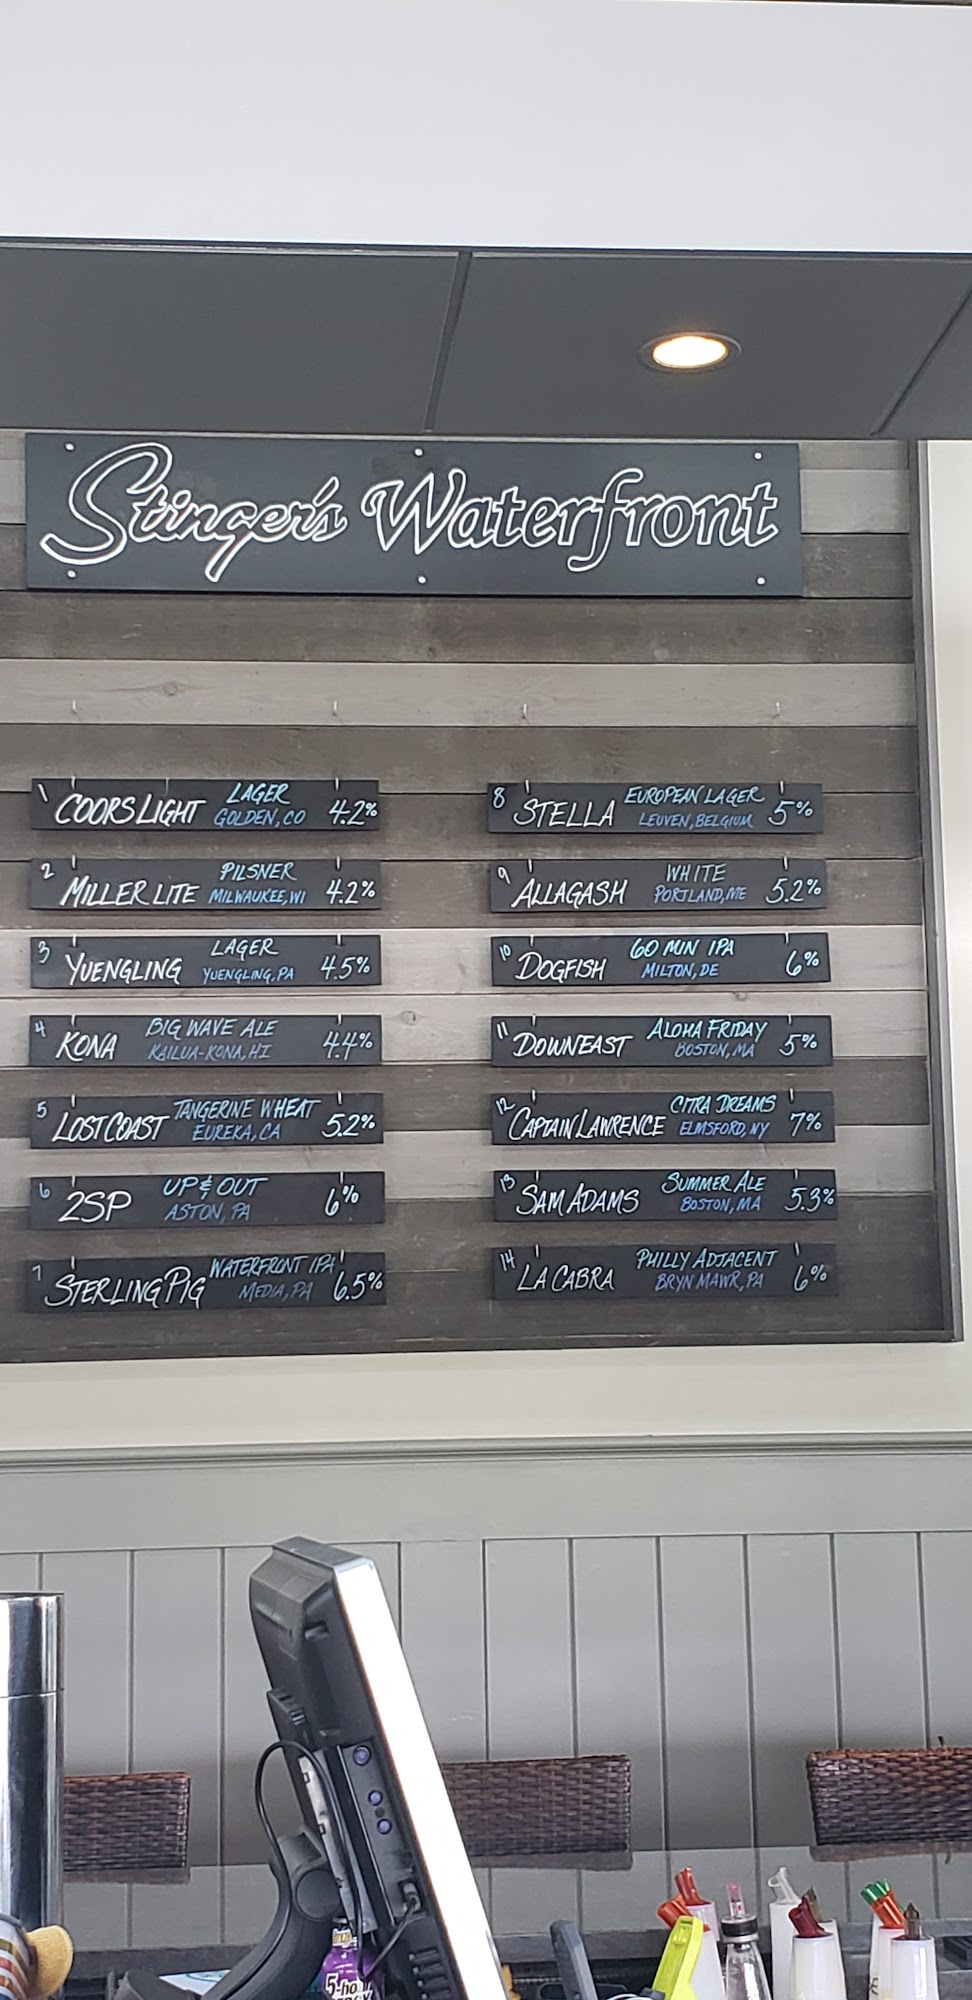 Stinger's Waterfront
1 COORS LIGHT LAGER GOLDEN, CO 4.2%
2 MILLER LITE PILSNER MILWAUKEE, WI 4.2%
3 YUENGLING LAGER YUENGLING, PA 4.5%
4 KONA BIG WAVE ALE KAILUA-KONA, HI 4.4%
5 LOST COAST TANGERINE WHEAT EUREKA, CA 5.2%
6 2SP UP & OUT ASTON, PA 6%
7 STERLING PIG WATERFRONT IPA MEDIA, PA 6.5%
8 STELLA EUROPEAN LAGER LEUVEN, BELGIUM 5%
9 ALLAGASH WHITE PORTLAND, ME 5.2%
10 DOGFISH 60 MIN IPA MILTON, DE 6%
11 DOWNEAST ALOHA FRIDAY BOSTON, MA 5%
12 CAPTAIN LAWRENCE CITRA DREAMS ELMSFORD, NY 7%
13 SAM ADAMS SUMMER ALE BOSTON, MA 5.3%
14 LA CABRA PHILLY ADJACENT BRYN MAWR, PA 6%